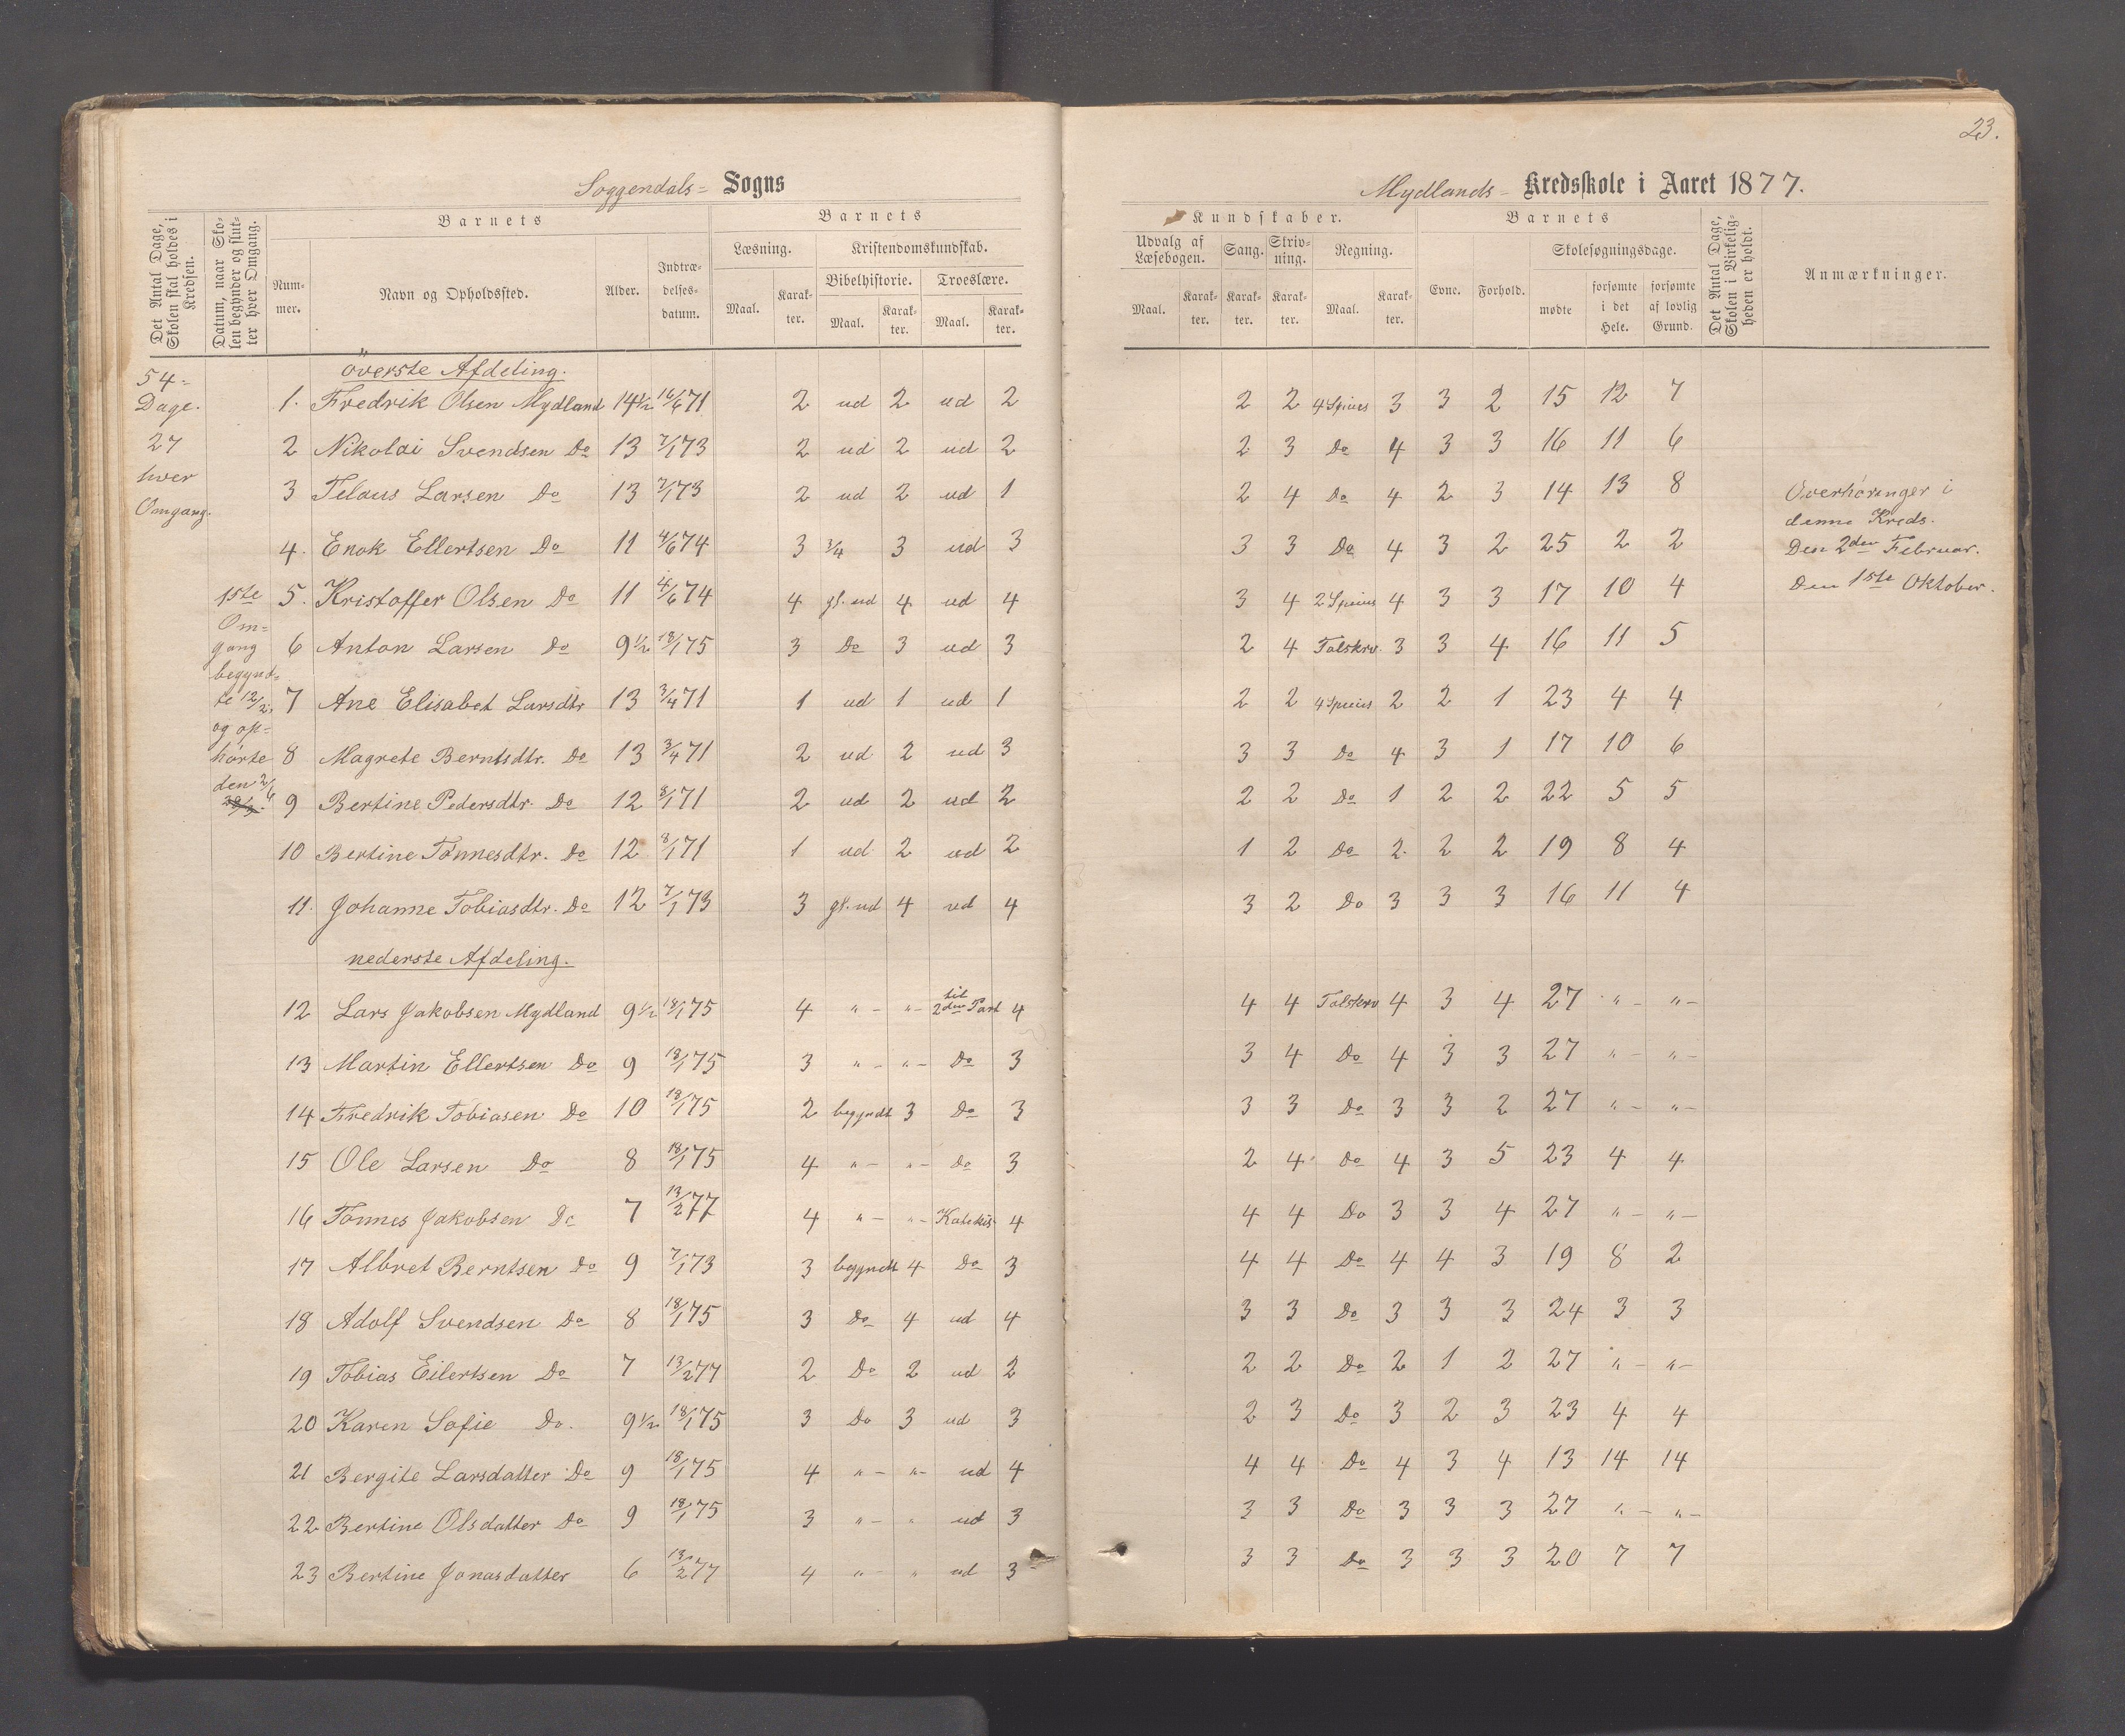 23.
Soggendals= Sogns
Mydlands= Kredsskole i Aaret 1877.
Det Antal Dage, Skolen skal holdes i Kredsen.
Datum, naar Skolen begynder og slutter hver Omgang.
Barnets
Nummer.
Navn og Opholdssted.
Alder.
Indtrædelses-datum.
Barnets
Læsning.
Maal.
Karakter.
Kristendomskundskab.
Bibelhistorie.
Maal.
Karakter.
Troeslære.
Maal.
Karakter.
Kundskaber.
Udvalg af Læsebogen.
Maal.
Karakter.
Sang.
Karakter.
Skrivning.
Karakter.
Regning.
Maal.
Karakter.
Barnets
Evne.
Forhold.
Skolesøgningsdage.
mødte
forsømte i det Hele.
forsømte af lovlig Grund.
Det Antal Dage, Skolen i Virkeligheden er holdt.
Anmærkninger.
54=
Dage.
27
hver
Omgang.
1ste
Om=
gang
begynd=
te 12/2.
og op=
hørte
den 2/6
överste Afdeling.
1. Fredrik Olsen Mydland 14½ 16/6 71 2 ud 2 ud 2 2 2 4 Spcies 3 3 2 15 12 7
2 Nikolai Svendsen Do 13 7/1 73 2 ud 2 ud 2 2 3 Do 4 3 3 16 11 6
3 Telaus Larsen Do 13 7/1 73 2 ud 2 ud 1 2 4 Do 4 2 3 14 13 8
4. Enok Ellertsen Do 11 4/6 74 3 3/4 3 ud 3 3 3 Do 4 3 2 25 2 2
5. Kristoffer Olsen Do 11 4/6 74 4 gl. ud 4 ud 4 3 4 2 Spcies 4 3 3 17 10 4
6 Anton Larsen Do 9½ 18/1 75 3 Do 3 ud 3 2 4 Talskrv. 3 3 4 16 11 5
7 Ane Elisabet Larsdtr 13 3/4 71 1 ud 1 ud 1 2 2 4 Spcies 2 2 1 23 4 4
8 Magrete Berntsdtr. Do 13 3/4 71 2 ud 2 ud 3 3 3 Do 4 3 1 17 10 6
9 Bertine Pedersdtr. Do 12 8/1 71 2 ud 2 ud 2 2 2 Do 1 2 2 22 5 5
10 Bertine Tönnesdtr. Do 12 8/1 71 1 ud 2 ud 2 1 2 Do 2 2 2 19 8 4
11. Johanne Tobiasdtr. Do 12 7/1 73 3 gl. ud 4 ud 4 3 2 Do 3 3 3 16 11 4
nederste Afdeling.
12 Lars Jakobsen Mydland 9½ 18/1 75 4 " - " - til 2den Part 4 4 4 Talskrv 4 3 4 27 " - " -
13 Martin Ellertsen Do 9 18/1 75 3 " - " - Do 3 3 4 Do 4 3 3 27 " - " -
14 Fredrik Tobiasen Do 10 18/1 75 2 begyndt 3 Do 3 3 3 Do 3 3 2 27 " - " -
15 Ole Larsen Do 8 18/1 75 4 " - " - Do 3 2 4 Do 4 3 5 23 4 4
16 Tönnes Jakobsen Do 7 13/2 77 4 " - " - Katekis 4 4 4 Do 3 3 4 27 " - " -
17 Albret Berntsen Do 9 7/1 73 3 begyndt 4 Do 3 4 4 Do 4 4 3 19 8 2
18 Adolf Svendsen Do 8 18/1 75 3 Do 4 ud 4 3 3 Do 3 3 3 24 3 3
19 Tobias Eilertsen Do 7 13/2 77 2 Do 2 ud 2 2 2 Do 2 1 2 27 " - " -
20 Karen Sofie Do. 9½ 18/1 75 3 Do 3 ud 3 2 3 Do 3 2 3 23 4 4
21 Bergite Larsdatter Do 9 18/1 75 4 " - " - ud 4 4 4 Do 4 3 4 13 14 14
22 Bertine Olsdatter Do 9 18/1 75 3 " - " ud 3 3 3 Do 3 3 3 27 " - " -
23 Bertine Jonasdatter 6 13/2 77 4 " - " ud 3 3 3 Do 3 3 3 20 7 7
Overhøringer i
denne Kreds.
Den 2den Februar.
Den 1ste Oktober.